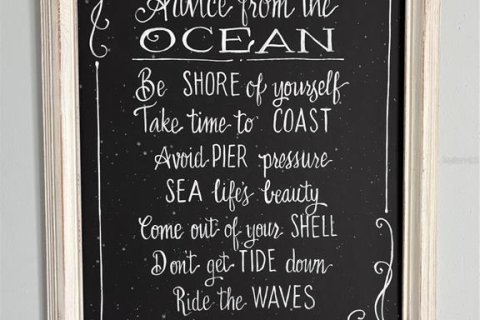 Advice from the
OCEAN
Be SHORE of yourself
Take time to COAST
Avoid PIER pressure
SEA life's beauty
Come out of your SHELL
Don't get TIDE down
Ride the WAVES